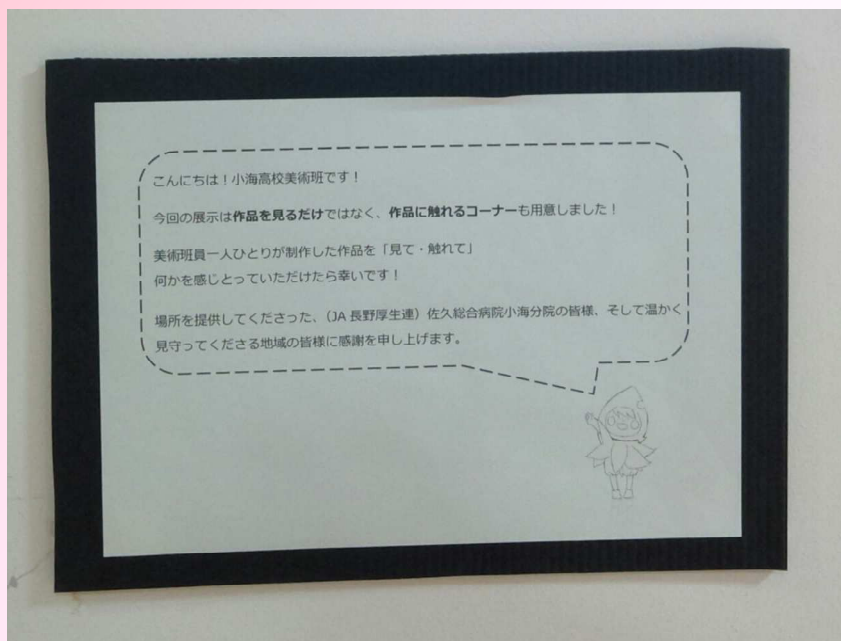 こんにちは！小海高校美術班です！
今回の展示は作品を見るだけではなく、作品に触れるコーナーも用意しました！
美術班員一人ひとりが制作した作品を「見て・触れて」
何かを感じとっていただけたら幸いです！
場所を提供してくださった、（JA 長野厚生連）佐久総合病院小海分院の皆様、そして温かく
見守ってくださる地域の皆様に感謝を申し上げます。